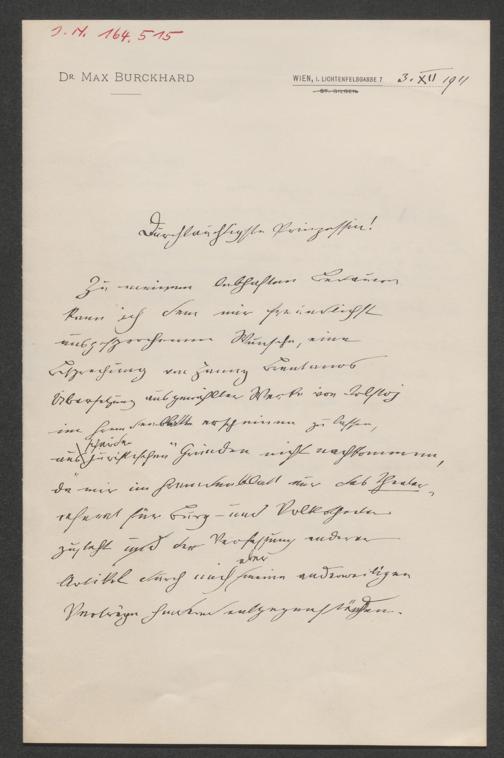 J. N. 164.515
DR MAX BURCKHARD
WIEN, I. LICHTENFELSGASSE 7 3. XII 1911
ST. GILGEN
Durchlauchtigste Prinzessin!
Zu meinem lebhaften Bedauern
kann ich dem mir freundlichst
ausgesprochenen Wunsche, eine
Besprechung von Hanny Brentanos
Übersetzung ausgewählter Werke von Tolstoj
im Fremdenblatte erscheinen zu lassen,
aus „juristischen" Gründen nicht nachkommen,
da mir im Fremdenblatt nur das Theater-
referat für Burg- und Volkstheater
zusteht und der Verfassung anderer
Artikel durch mich aber meine anderweitigen
Verträge entgegenstünden.